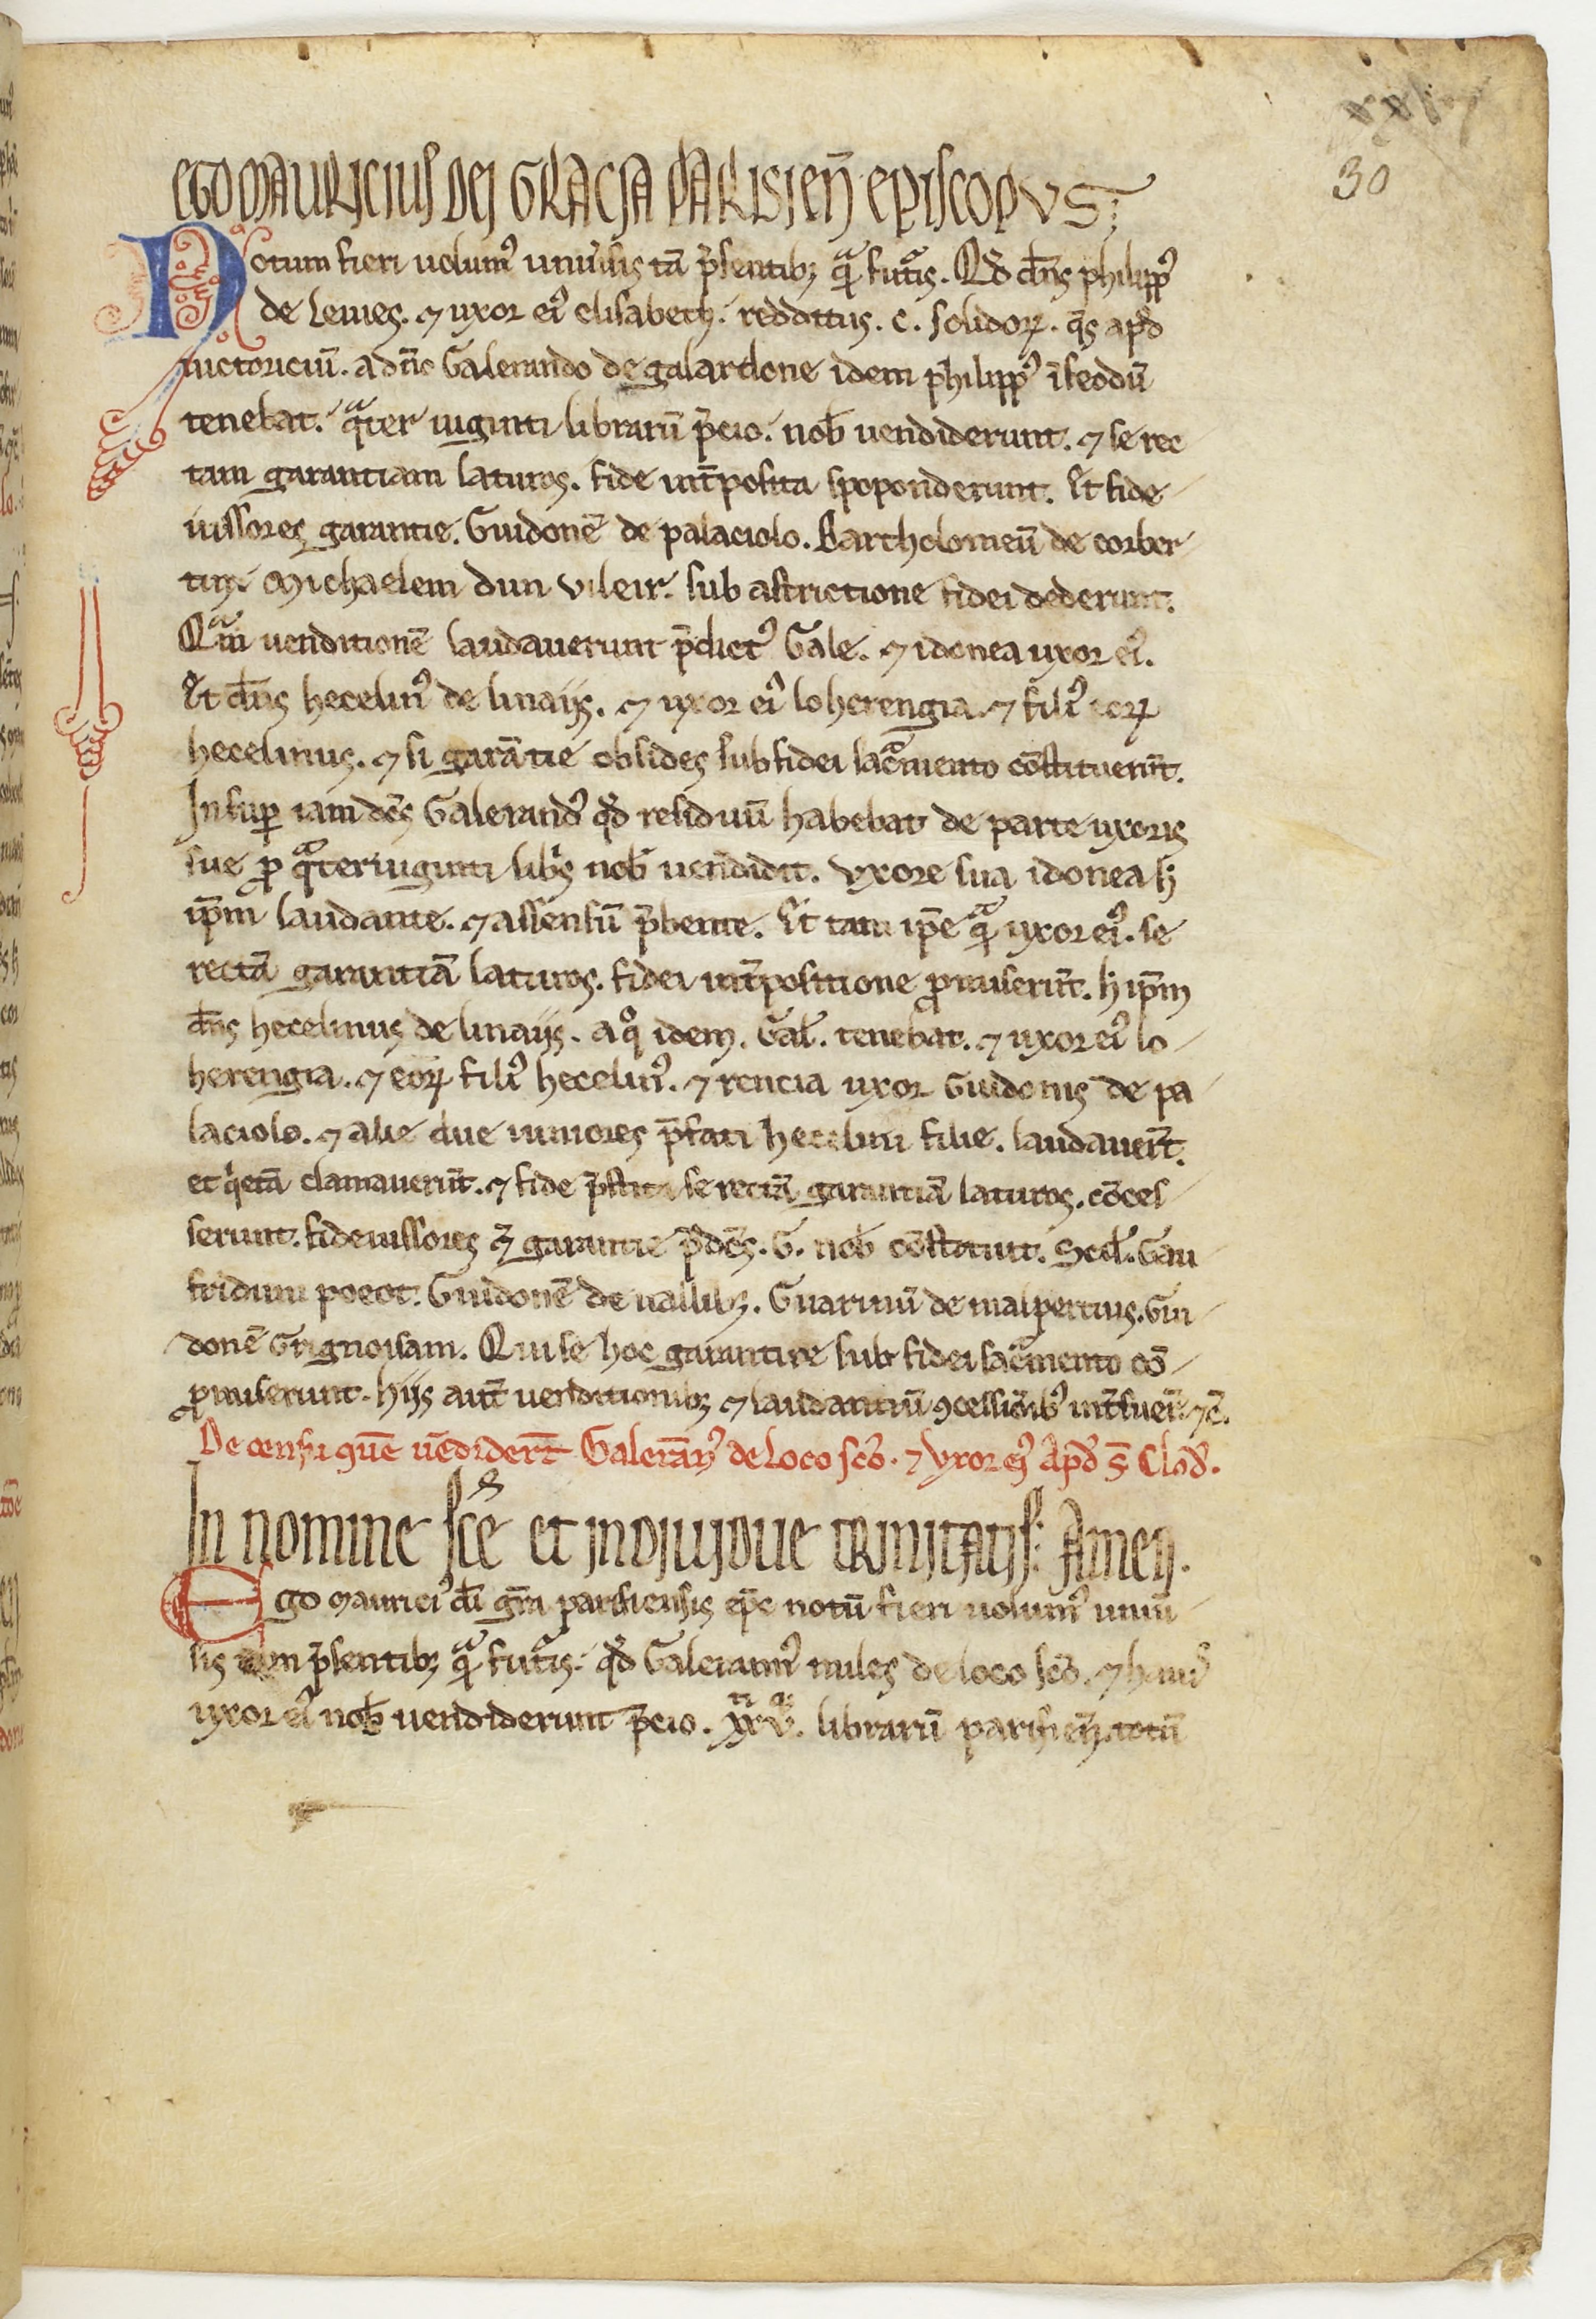 30
EGO MAURICIUS DEI GRACIA PARISIEN̄ EPISCOPUS;
Notum fieri uolumꝰ uniu͛sis tā p̄sentibꝫ qͣ futͥis. Qd̄ dn̄s philippꝰ
de Leuies. ⁊ uxor eiꝰ elisabeth. redditus. c. solidoꝝ. q̄s apd̄
uictoriciū. a dn̄o Galerando de galardone idem philippꝰ ī feodū
tenebat. qͣter uiginti librarū p̄cio. nob̄ uendiderunt. ⁊ se rec
tam garantiam laturos. fide int̄posita spoponderunt. Et fide
iussores garantie. Guidonē de palaciolo. Bartholomeū de corber
tin. Michaelem dun vileir. sub astrictione fidei dederunt.
Qͣm uenditionē laudauerunt p̄dictꝰ Gale. ⁊ idonea uxor eiꝰ.
Et dn̄s hecelinꝰ de linaiis. ⁊ uxor eiꝰ loherengia. ⁊ filiꝰ eoꝝ
hecelinus. ⁊ si garātie obsides sub fidei sac̄mento cōstituer̄t.
Insuꝑ iam dc̄s Galerandꝰ qd̄ residuū habebat de parte uxoris
sue ꝓ qͣteruiginti libͥs nob̄ uendidit. uxore sua idonea h̄
ip̄m laudante. ⁊ assensū p̄bente. Et tam ip̄e qͣ uxor eiꝰ. se
rectā garantiā laturos. fidei int̄positione ꝓmiserūt. h̄ ip̄m
dn̄s hecelinus de linaiis. a qͦ idem. Gal̄. tenebat. ⁊ uxor eiꝰ lo
herengia. ⁊ eoꝝ filiꝰ hecelinꝰ. ⁊ rencia uxor Guidonis de pa
laciolo. ⁊ alie due iuniores p̄fati hecelini filie. laudauer̄t.
et qͥetā clamauerūt. ⁊ fide p̄stita se rectā garantiā laturos. cōces
serunt. fideiussores garantie p̄dc̄s. G. nob̄ cōstituit. Scil̄. Gau
fridum pocot. Guidonē de uallibꝫ. Guarinū de malpertuis. Gui
donē Grignoisam. Qui se hoc garantire sub fidei sac̄mento cō
ꝓmiserunt. hiis aut̄ uenditionibꝫ ⁊ laudantiū ꝯcessiōibꝰ int̄fuer̄ ⁊c̄.
De censu quē uēdider̄t Galerānꝰ de Loco sc̄o. ⁊ Uxor eiꝰ Apd̄ S̄ Clod̄.
In nomine sc̄e et indiuidue trinitatis. Amen.
Ego mauriciꝰ di̅ gr̄a parisiensis ep̄c notū fieri uolumꝰ uniu͛
sis tam p̄sentibꝫ qͣ futͥis. qd̄ Galerannꝰ miles de loco sc̄o. ⁊
uxor eiꝰ nob̄ uendiderunt p̄cio. librarū parisien̄. totū